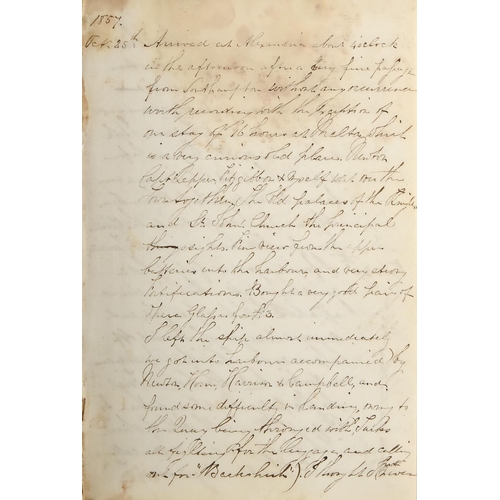 1857.
Oct. 25th Arrived at Alexandria about 4 o'clock
in the afternoon after a very fine passage
from Southampton without any occurrence
worth recording with the exception of
our stay of 16 hours at Malta, which
is a very curious old place, Newton
Fitzgibbon & myself went over the
town together, the old palaces of the Knights
and St. John's Church the principal
sights. Fine view from the upper
batteries into the harbour and very strong
fortifications. Bought a very good pair of
Opera Glasses for £3.
I left the ship almost immediately
we got into harbour accompanied by
Newton, Horn, Harrison & Campbell, and
found some difficulty in landing, owing to
the Quay being thronged with Turks
all fighting for the luggage, and calling
out for "Backshish") I thought